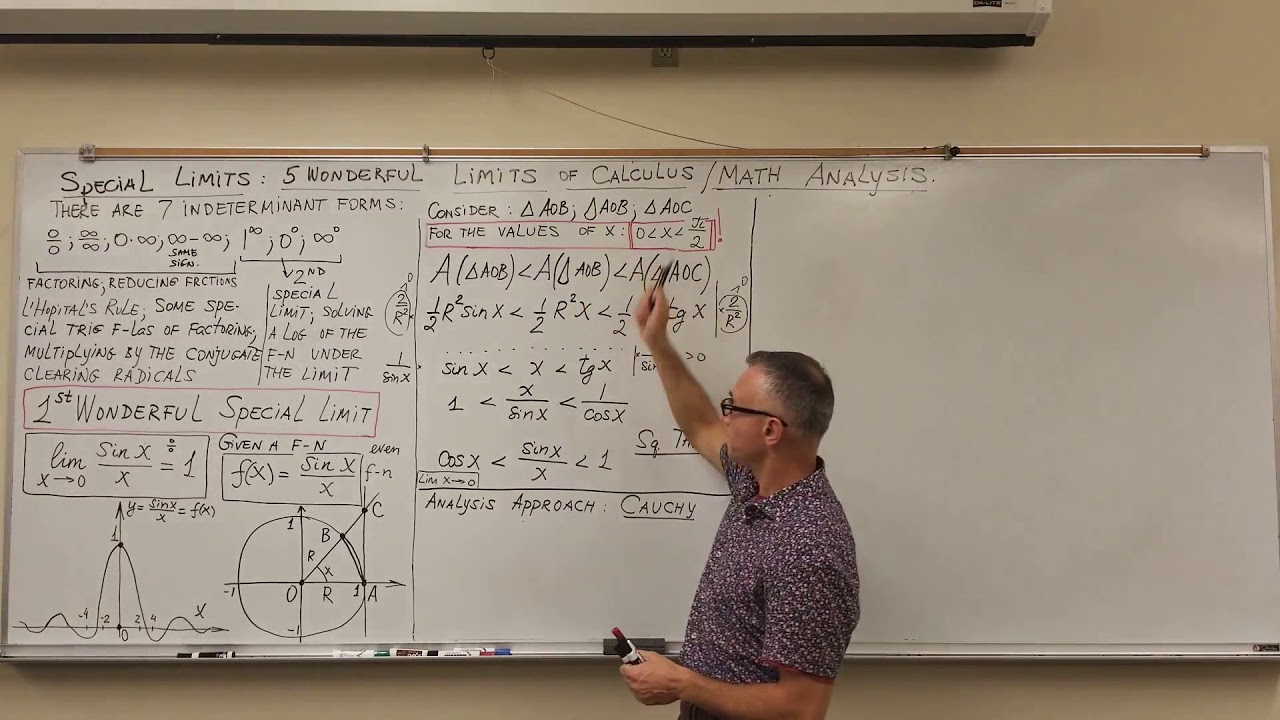 DA-LITE
SPECIAL LIMITS: 5 WONDERFUL LIMITS OF CALCULUS / MATH ANALYSIS.
THERE ARE 7 INDETERMINANT FORMS:
0/0; ∞/∞; 0·∞; ∞-∞; 1^∞; 0^0; ∞^0
SAME
SIGN.
FACTORING, REDUCING FRCTIONS
L'HOPITAL'S RULE, SOME SPE-
CIAL TRIG F-LAS OF FACTORING,
MULTIPLYING BY THE CONJUGATE
CLEARING RADICALS
2ND
SPECIAL
LIMIT; SOLVING
A LOG OF THE
F-N UNDER
THE LIMIT
1st WONDERFUL SPECIAL LIMIT
lim x→0 sin x / x = 1 0/0
GIVEN A F-N
f(x) = sin x / x
even
f-n
y = sin x / x = f(x)
1
-4 -2 0 2 4 X
1 B C
R x
-1 O R 1 A
-1
CONSIDER: △AOB; AOB; △AOC
FOR THE VALUES OF X: 0<x<π/2 !
A(△AOB) < A(AOB) < A(△AOC)
2/R² × 1/2 R² sin x < 1/2 R² x < 1/2 tg x | × 2/R²
1/sin x × sin x < x < tg x | × 1/sin >0
1 < x/sin x < 1/cos x
Sq.
cos x < sin x / x < 1
LIM X→0
ANALYSIS APPROACH: CAUCHY